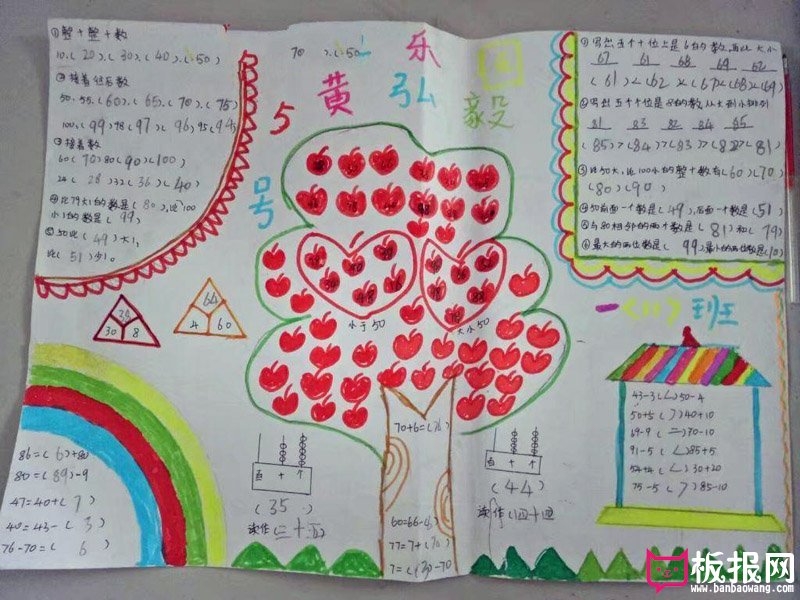 ①整十整十数
10,(20),(30),(40),(50)
②接着往后数
50,55,(60),(65),(70),(75)
100,(99)98(97),(96)95(94)
③接着数
60(70)80(90)(100)
24(28)32(36),(40)
④比79大1的数是(80),比100
小1的数是(99)
⑤50比(49)大1,
比(51)少1。
70),(50
乐
园
黄弘毅
5
号
①写出五个十位上是6的数,再比大小
67 61 68 64 62
(61)<(62)<(67<(68)<(69)
81 83 82 84 85
(85)>(84)>(83)>(82)>(81)
③比50大,比100小的整十数有(60)(70)
(80)(90)
④50前面一个数是(49),后面一个数是(51)
⑤与80相邻的两个数是(81)和(79)
⑥最大的两位数是(99)最小的两位数是(10)
一(11)班
38
30 8
64
4 60
小于50
大小50
43-3(<)50-4
50+5(>)40+10
69-9(=)70-10
91-5(<)85+5
54+4(<)30+20
75-5(>)85-10
86=(6)+80
80=(89)-9
47=40+(7)
40=43-(3)
76-70=(6)
百十个
(35)
读作(三十五)
70+6=(76)
60=66-(6)
77=7+(70)
7=(77)-70
百十个
(44)
读作(四十四
板报网
www.banbaowang.com